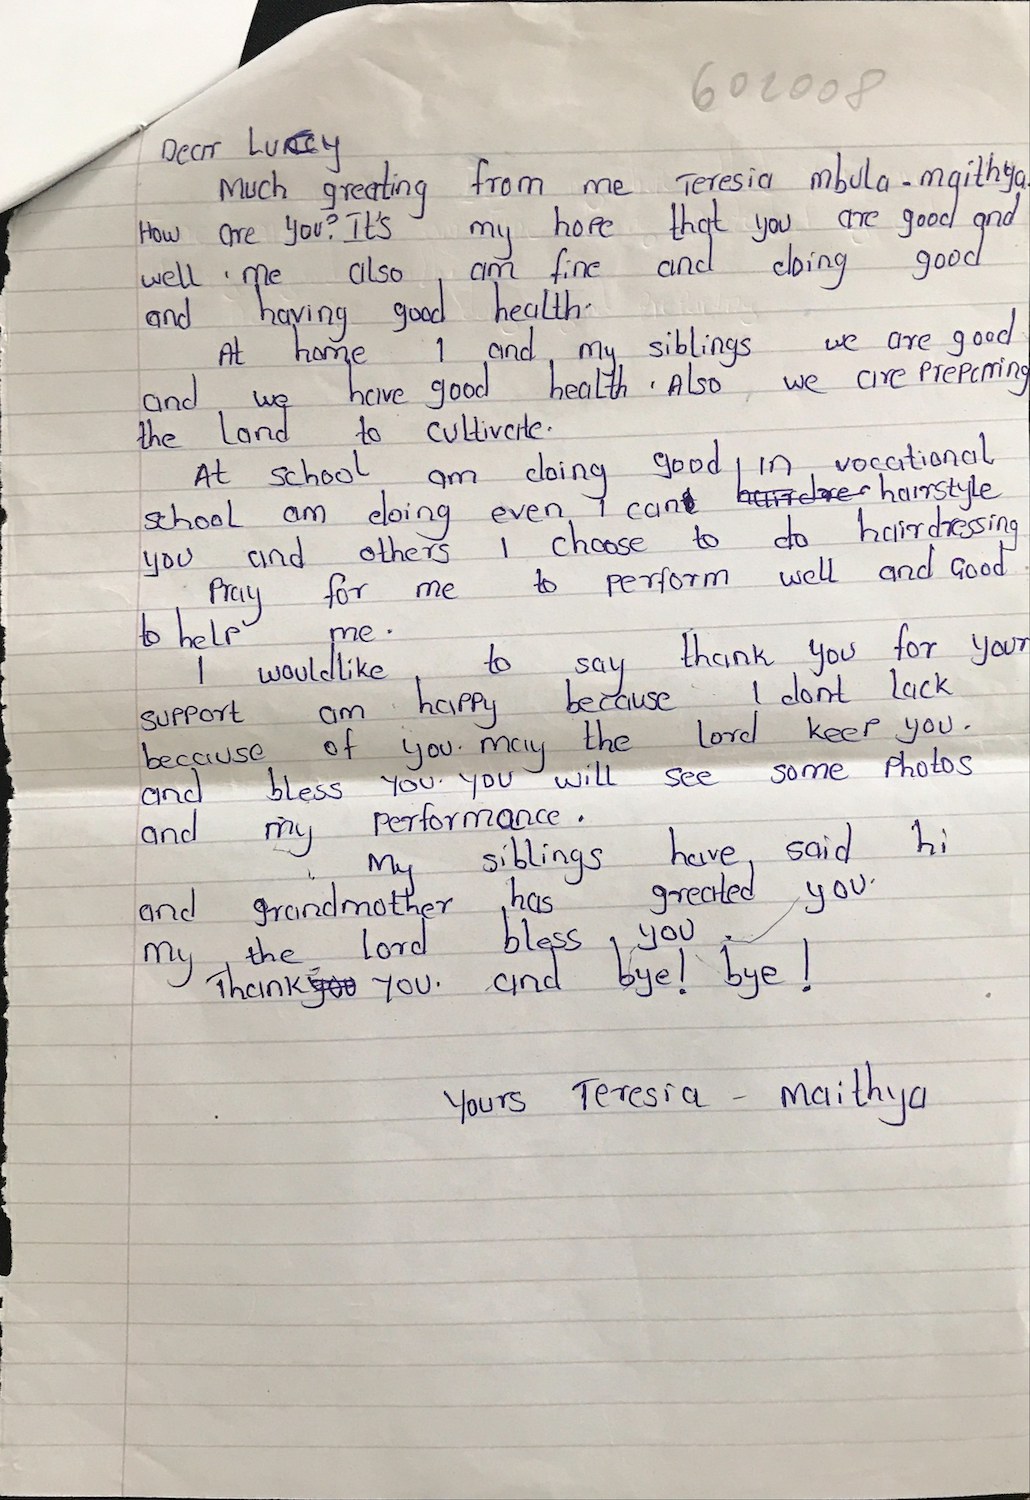 602008
Dear Lucy
Much greating from me Teresia mbula - maithya.
How are you? It's my hope that you are good and
well. me also am fine and doing good
and having good health.
At home I and my siblings we are good
and we have good health. Also we are preparing
the land to cultivate.
At school am doing good, in vocational
school am doing even I can hairdre hairstyle
you and others I choose to do hairdressing
Pray for me to perform well and Good
to help me.
I wouldlike to say thank you for your
support am happy because I dont lack
because of you. may the lord keep you.
and bless you. you will see some photos
and my performance.
My siblings have said hi
and grandmother has greated you.
my the lord bless you.
Thank you you. and bye! bye!
Yours Teresia - maithya